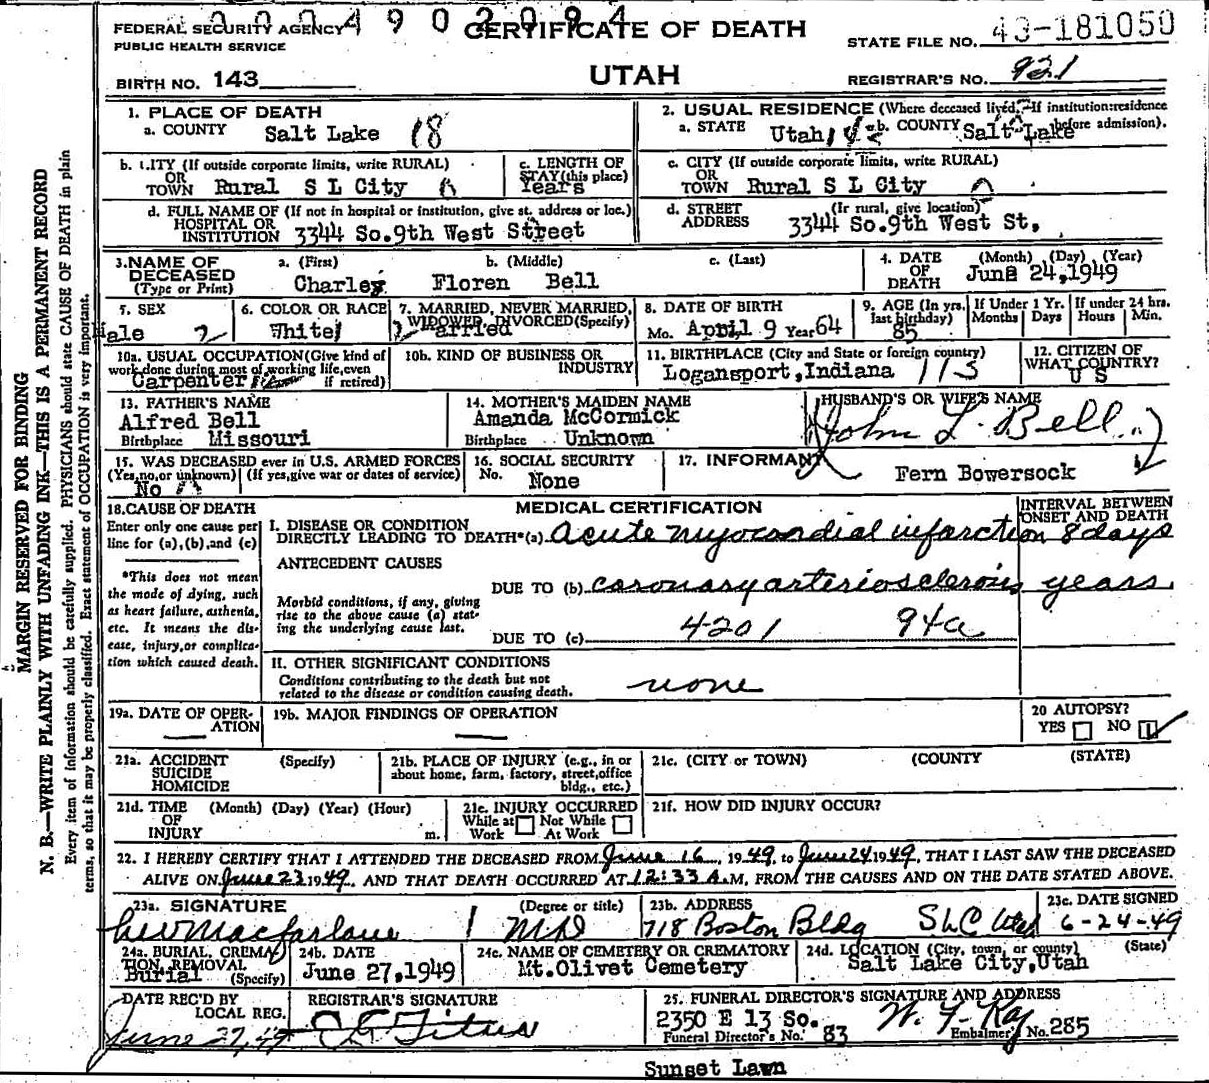 FEDERAL SECURITY AGENCY 4902094 CERTIFICATE OF DEATH
PUBLIC HEALTH SERVICE
STATE FILE NO. 43-181050
BIRTH NO. 143 UTAH REGISTRAR'S NO. 921
1. PLACE OF DEATH
a. COUNTY Salt Lake 18
2. USUAL RESIDENCE (Where deceased lived. If institution:residence before admission).
a. STATE Utah b. COUNTY Salt Lake
b. CITY (If outside corporate limits, write RURAL)
OR
TOWN Rural S L City
c. LENGTH OF STAY (this place)
Years
c. CITY (If outside corporate limits, write RURAL)
OR
TOWN Rural S L City
d. FULL NAME OF (If not in hospital or institution, give st. address or loc.)
HOSPITAL OR
INSTITUTION 3344 So.9th West Street
d. STREET (If rural, give location)
ADDRESS 3344 So.9th West St.
3. NAME OF DECEASED (Type or Print)
a. (First) b. (Middle) c. (Last)
Charley Floren Bell
4. DATE OF DEATH (Month) (Day) (Year)
June 24,1949
5. SEX
Male 2
6. COLOR OR RACE
White
7. MARRIED, NEVER MARRIED, WIDOWED, DIVORCED(Specify)
Married
8. DATE OF BIRTH
Mo. April 9 Year 64
9. AGE (In yrs. last birthday)
85
If Under 1 Yr. Months Days
If under 24 hrs. Hours Min.
10a. USUAL OCCUPATION(Give kind of work done during most of working life,even if retired)
Carpenter
10b. KIND OF BUSINESS OR INDUSTRY
11. BIRTHPLACE (City and State or foreign country)
Logansport,Indiana 113
12. CITIZEN OF WHAT COUNTRY?
U S
13. FATHER'S NAME
Alfred Bell
Birthplace Missouri
14. MOTHER'S MAIDEN NAME
Amanda McCormick
Birthplace Unknown
HUSBAND'S OR WIFE'S NAME
John L. Bell
15. WAS DECEASED ever in U.S. ARMED FORCES
(Yes,no,or unknown) (If yes,give war or dates of service)
No
16. SOCIAL SECURITY
No. None
17. INFORMANT
Fern Bowersock
18.CAUSE OF DEATH
Enter only one cause per line for (a),(b),and (c)
MEDICAL CERTIFICATION
INTERVAL BETWEEN ONSET AND DEATH
I. DISEASE OR CONDITION
DIRECTLY LEADING TO DEATH*(a) Acute myocardial infarction 8 days
*This does not mean the mode of dying, such as heart failure, asthenia, etc. It means the disease, injury,or complication which caused death.
ANTECEDENT CAUSES
DUE TO (b) coronary arteriosclerosis years
Morbid conditions, if any, giving rise to the above cause (a) stating the underlying cause last.
DUE TO (c) 4201 94a
II. OTHER SIGNIFICANT CONDITIONS
Conditions contributing to the death but not related to the disease or condition causing death.
none
19a. DATE OF OPERATION
19b. MAJOR FINDINGS OF OPERATION
20 AUTOPSY?
YES NO
21a. ACCIDENT SUICIDE HOMICIDE (Specify)
21b. PLACE OF INJURY (e.g., in or about home, farm, factory, street,office bldg., etc.)
21c. (CITY or TOWN) (COUNTY) (STATE)
21d. TIME OF INJURY (Month) (Day) (Year) (Hour) m.
21e. INJURY OCCURRED
While at Work Not While At Work
21f. HOW DID INJURY OCCUR?
22. I HEREBY CERTIFY THAT I ATTENDED THE DECEASED FROM June 16, 1949, to June 24 1949, THAT I LAST SAW THE DECEASED
ALIVE ON June 23 1949, AND THAT DEATH OCCURRED AT 12:33 A.M, FROM THE CAUSES AND ON THE DATE STATED ABOVE.
23a. SIGNATURE (Degree or title)
Macfarlane MD
23b. ADDRESS
718 Boston Bldg SLC Utah
23c. DATE SIGNED
6-24-49
24a. BURIAL, CREMATION, REMOVAL (Specify)
Burial
24b. DATE
June 27,1949
24c. NAME OF CEMETERY OR CREMATORY
Mt.Olivet Cemetery
24d. LOCATION (City, town, or county) (State)
Salt Lake City,Utah
DATE REC'D BY LOCAL REG.
June 27, 49
REGISTRAR'S SIGNATURE
Titus
25. FUNERAL DIRECTOR'S SIGNATURE AND ADDRESS
2350 E 13 So. W. F. Kay
Funeral Director's No. 83 Embalmer's No. 285
Sunset Lawn
MARGIN RESERVED FOR BINDING
N. B.—WRITE PLAINLY WITH UNFADING INK—THIS IS A PERMANENT RECORD
Every item of information should be carefully supplied. PHYSICIANS should state CAUSE OF DEATH in plain
terms, so that it may be properly classified. Exact statement of OCCUPATION is very important.